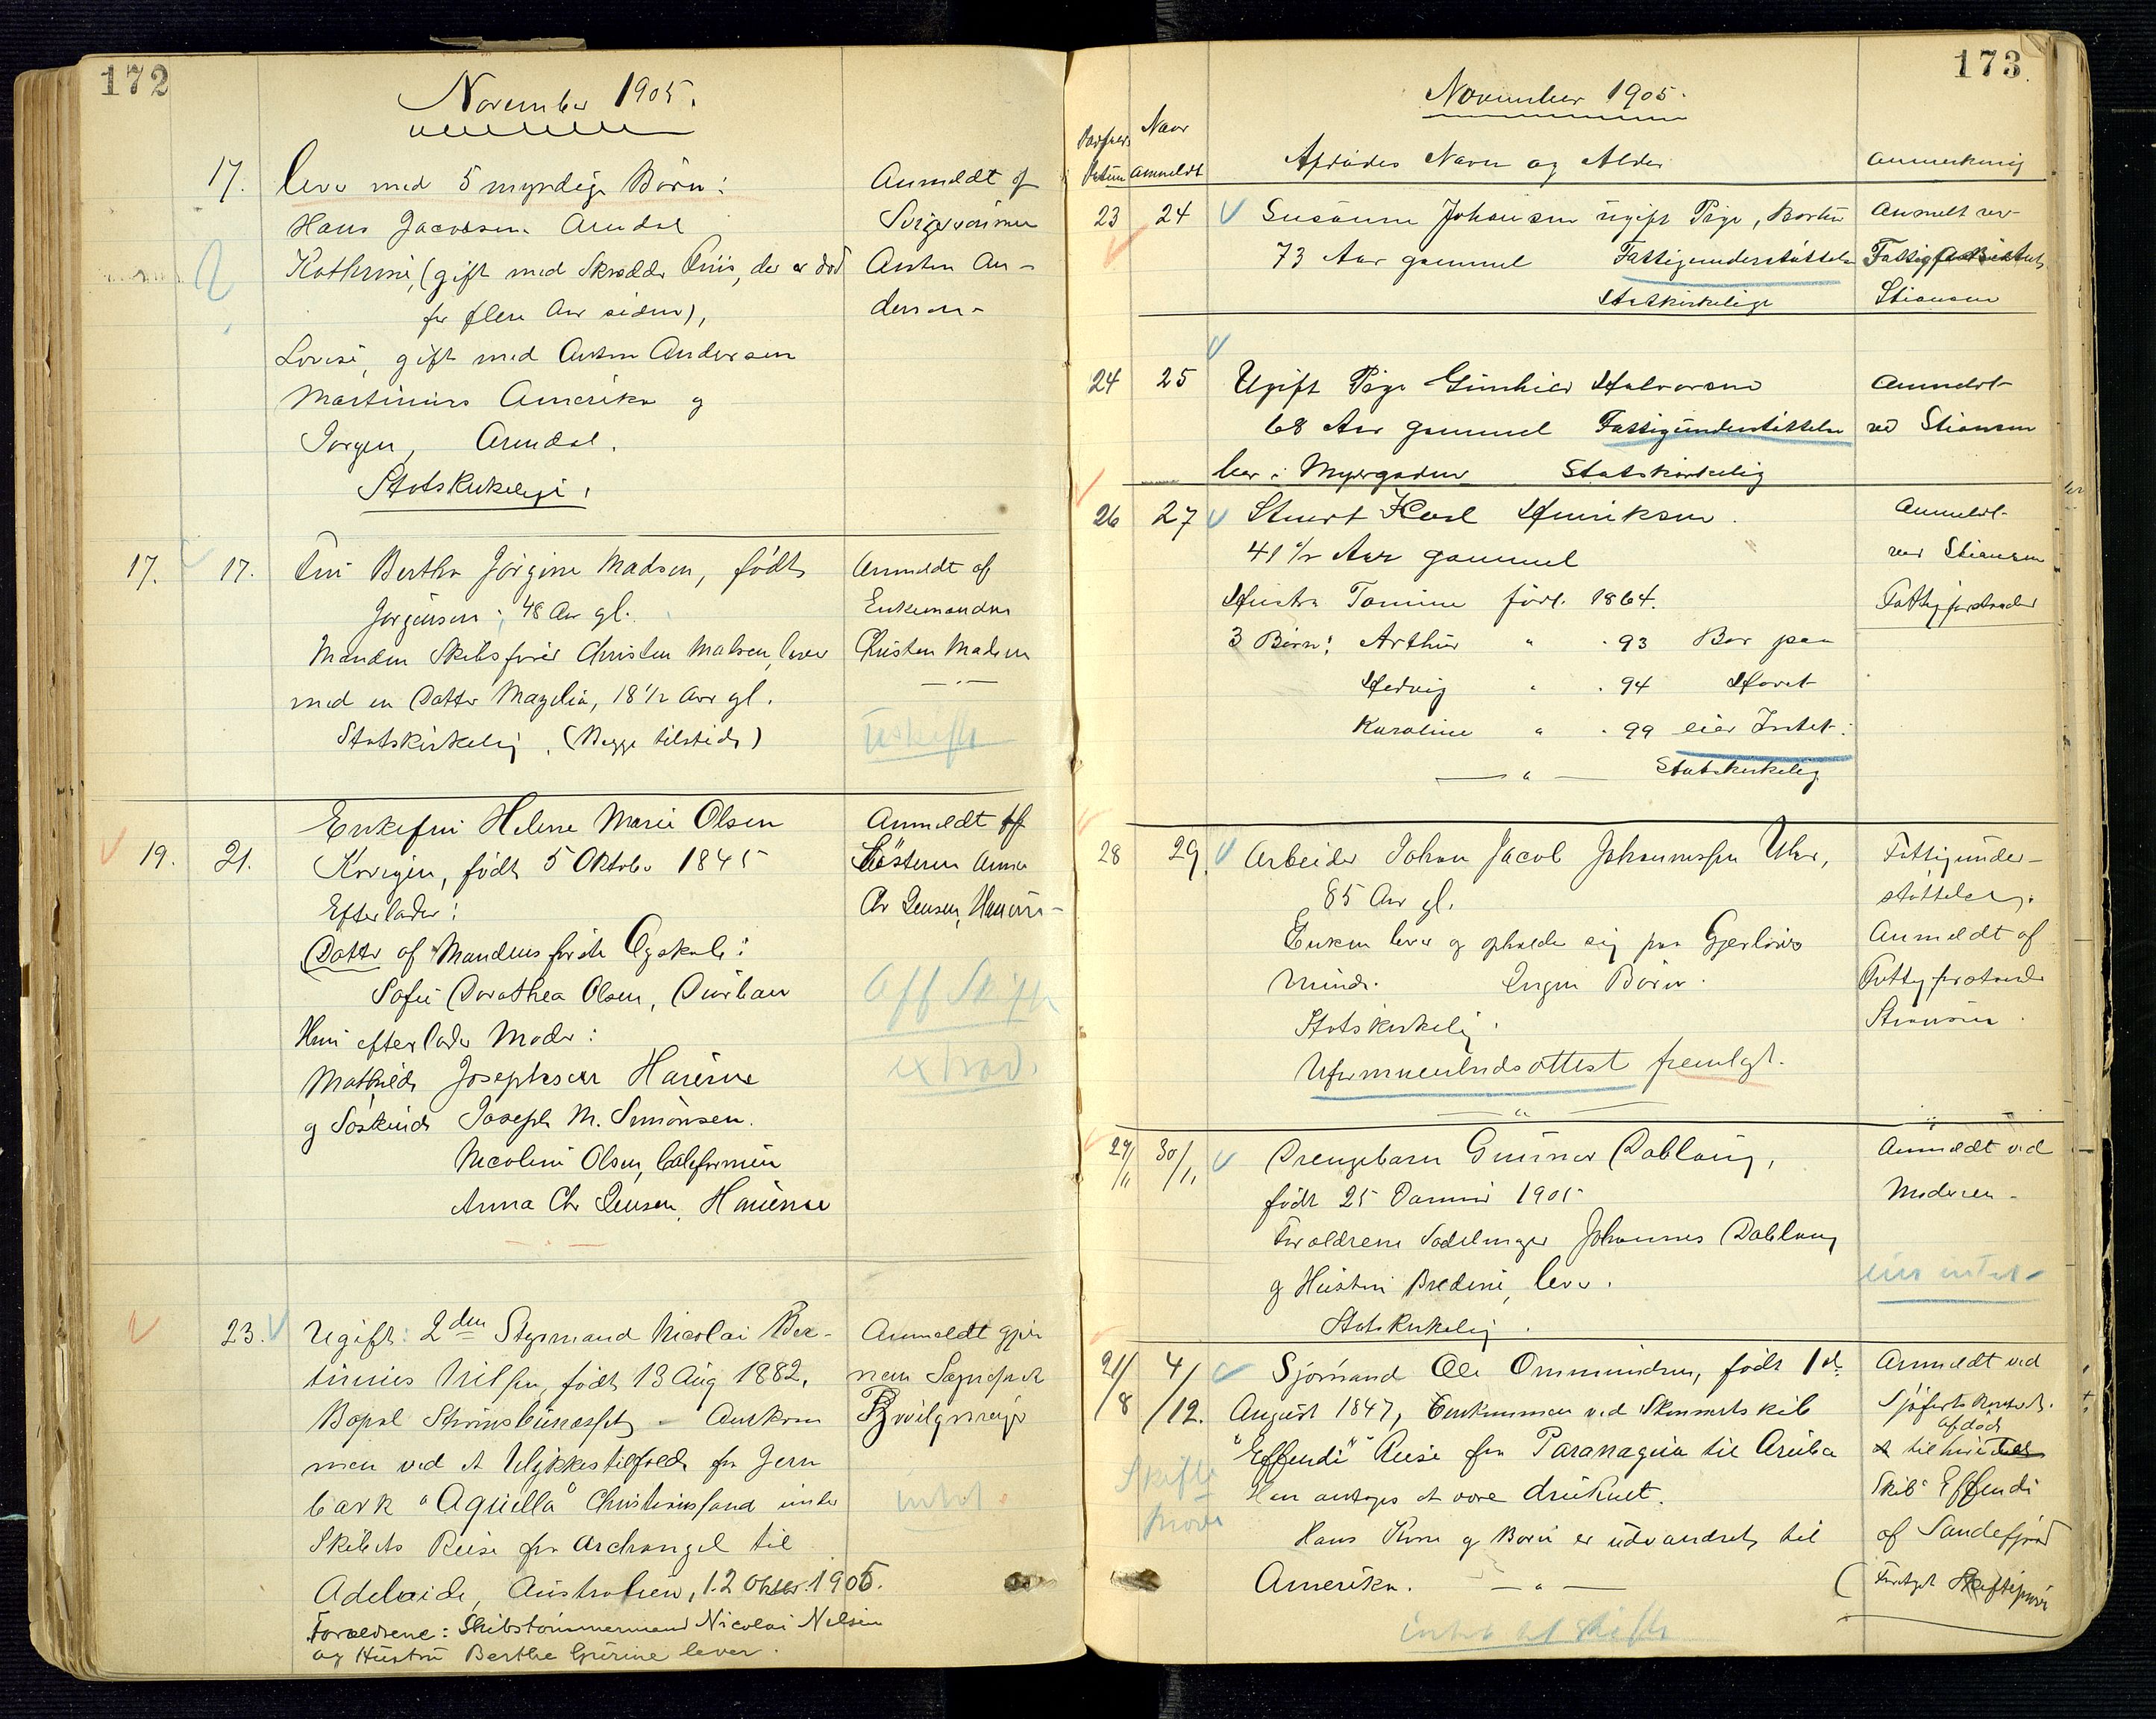 172
November 1905.
17. leve med 5 myndige Børn: Anmeldt af
Hans Jacobsen Arendal Svigersønnen
Kathrine, (gift med Skrædder Friis, der er død Anton An-
for flere Aar siden), dersen
Lovise, gift med Anton Andersen
Martinius Amerika og
Jørgen, Arendal.
Statskirkelige.
17. 17. Fru Bertha Jørgine Madsen, født Anmeldt af
Jørgensen; 48 Aar gl. Enkemanden
Manden Skibsfører Christen Madsen, lever Christen Madsen
med en Datter Magdelia, 18 1/2 Aar gl.
Statskirkelig. (Begge tilstede) Uskifte
Enkefru Helene Marie Olsen Anmeldt af
19. 21. født 5 Oktober 1845 Søsteren Anna
Efterlader: Chr Jensen,
Datter af Mandens første Egteskab:
Sofie Dorothea Olsen, Durban Off Skifte
Hun efterlader Moder:
Mathilde Josephsen extrad.
og Søskende Joseph M. Simonsen.
Nicoline Olsen, Californien
Anna Chr Jensen,
23. Ugift 2den Styrmand Nicolai Ber- Anmeldt gjen-
tinius Nilsen, født 13 Aug 1882. nem
Bopæl Strømsbunesset - Omkom
men ved et Ulykkestilfælde fra Jern
bark "Aquilla" Christianssand under intet
Skibets Reise fra Archangel til
Adelaide, Australien, 12 Oktbr. 1905.
Forældrene: Skibstømmermand Nicolai Nilsen
og Hustru Berthe Gurine lever.
173.
November 1905.
Naar
Datum anmeldt Afdødes Navn og Alder Anmerkning
23 24 Susanne Johansen ugift Pige, Anmelt ved
73 Aar gammel Fattigunderstøttelse
Statskirkelige Stiansen
24 25 Ugift Pige Gunhild Halvorsen Anmeldt
68 Aar gammel Fattigunderstøttelse ved Stiansen
bor i Myrgaden Statskirkelig
26 27 Stuert Karl Henriksen. Anmeldt
41 1/2 Aar gammel ved Stiansen
Hustru Tomine født. 1864. Fattigforstander
3 Børn: Arthur " " 93 Bor paa
Hedvig " " 94 Hovet
Karoline " " 99 eier Intet.
— " — Statskirkelig
28 29. Arbeider Johan Jacob Johannessen Fattigunder-
85 Aar gl. støttelse.
Enken lever og opholder sig paa Gjerløvs Anmeldt af
minde. Ingen Børn. Fattigforstander
Statskirkelig. Stiansen.
Uformuenhedsattest fremlagt.
29/11 30/11 Drengebarn Gunnar Dablaug, Anmeldt ved
født 25 Januar 1905 Moderen.
Forældrene Sadelmager Johannes Dablaug
og Hustru Bredine, lever. eier intet
Statskirkelig.
21/8 4/12. Sjømand Ole Ommundsen, født 1ste Anmeldt ved
August 1847, Omkommen ved Skonnertskib Sjøfartskontoret.
"Effendi" Reise fra Paranagua til Aruba afdøde tilhørte
Skifte Han antages at være druknet. Skib Effendi
Prove Hans Kone og Børn er udvandret til af Sandefjord
Amerika. — " — Foretaget Skifteprøve
intet at skifte